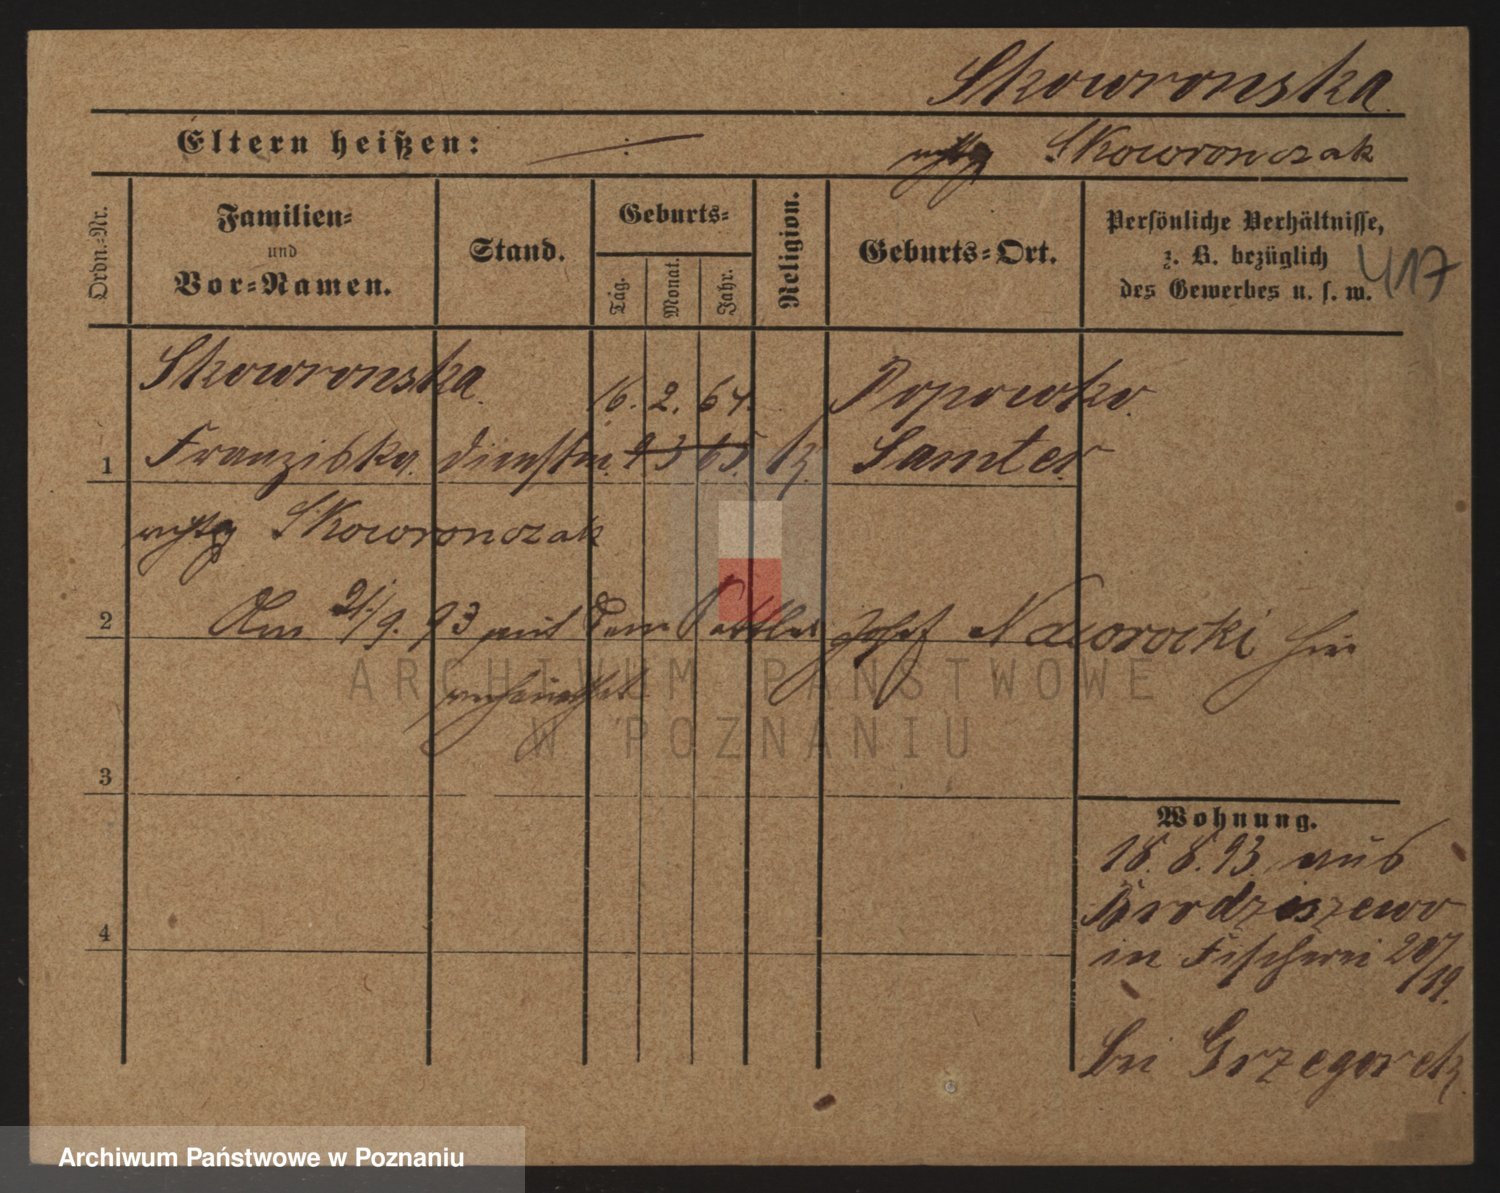 Skowronska
Eltern heißen: rchtg Skowronczak
Ordn.-Nr.
Familien-
und
Vor-Namen.
Stand.
Geburts-
Tag.
Monat.
Jahr.
Religion.
Geburts-Ort.
Persönliche Verhältnisse,
z. B. bezüglich
des Gewerbes u. s. w.
417
Skowronska 16. 2. 64. Popowko
1 Franziska Dienstm. 9 3 65. k Samter
rchtg Skowronczak
2 Am 21/9. 93 mit dem Sattler Josef Naworocki hier
verheirathet
ARCHIWUM PAŃSTWOWE
W POZNANIU
3
4
Wohnung.
18. 8. 93. aus
Brodziszewo
in Fischerei 20/
19.
bei Grzegorek
Archiwum Państwowe w Poznaniu